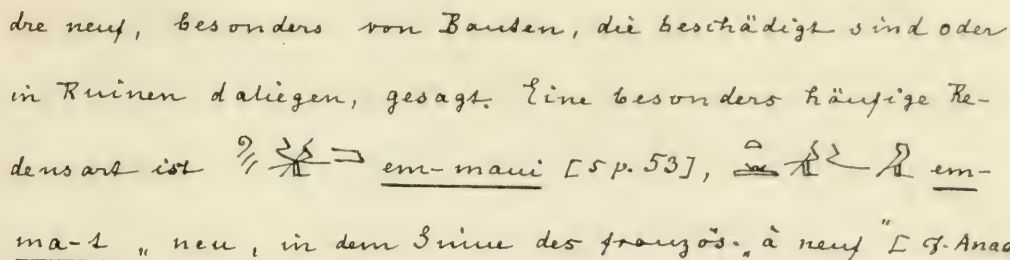 dre neuf, besonders von Bauten, die beschädigt sind oder
in Ruinen daliegen, gesagt. Eine besonders häufige Re-
densart ist em-maui [s p. 53], em-
ma-t „neu, in dem Sinne des französ. „à neuf" [cf. Anac